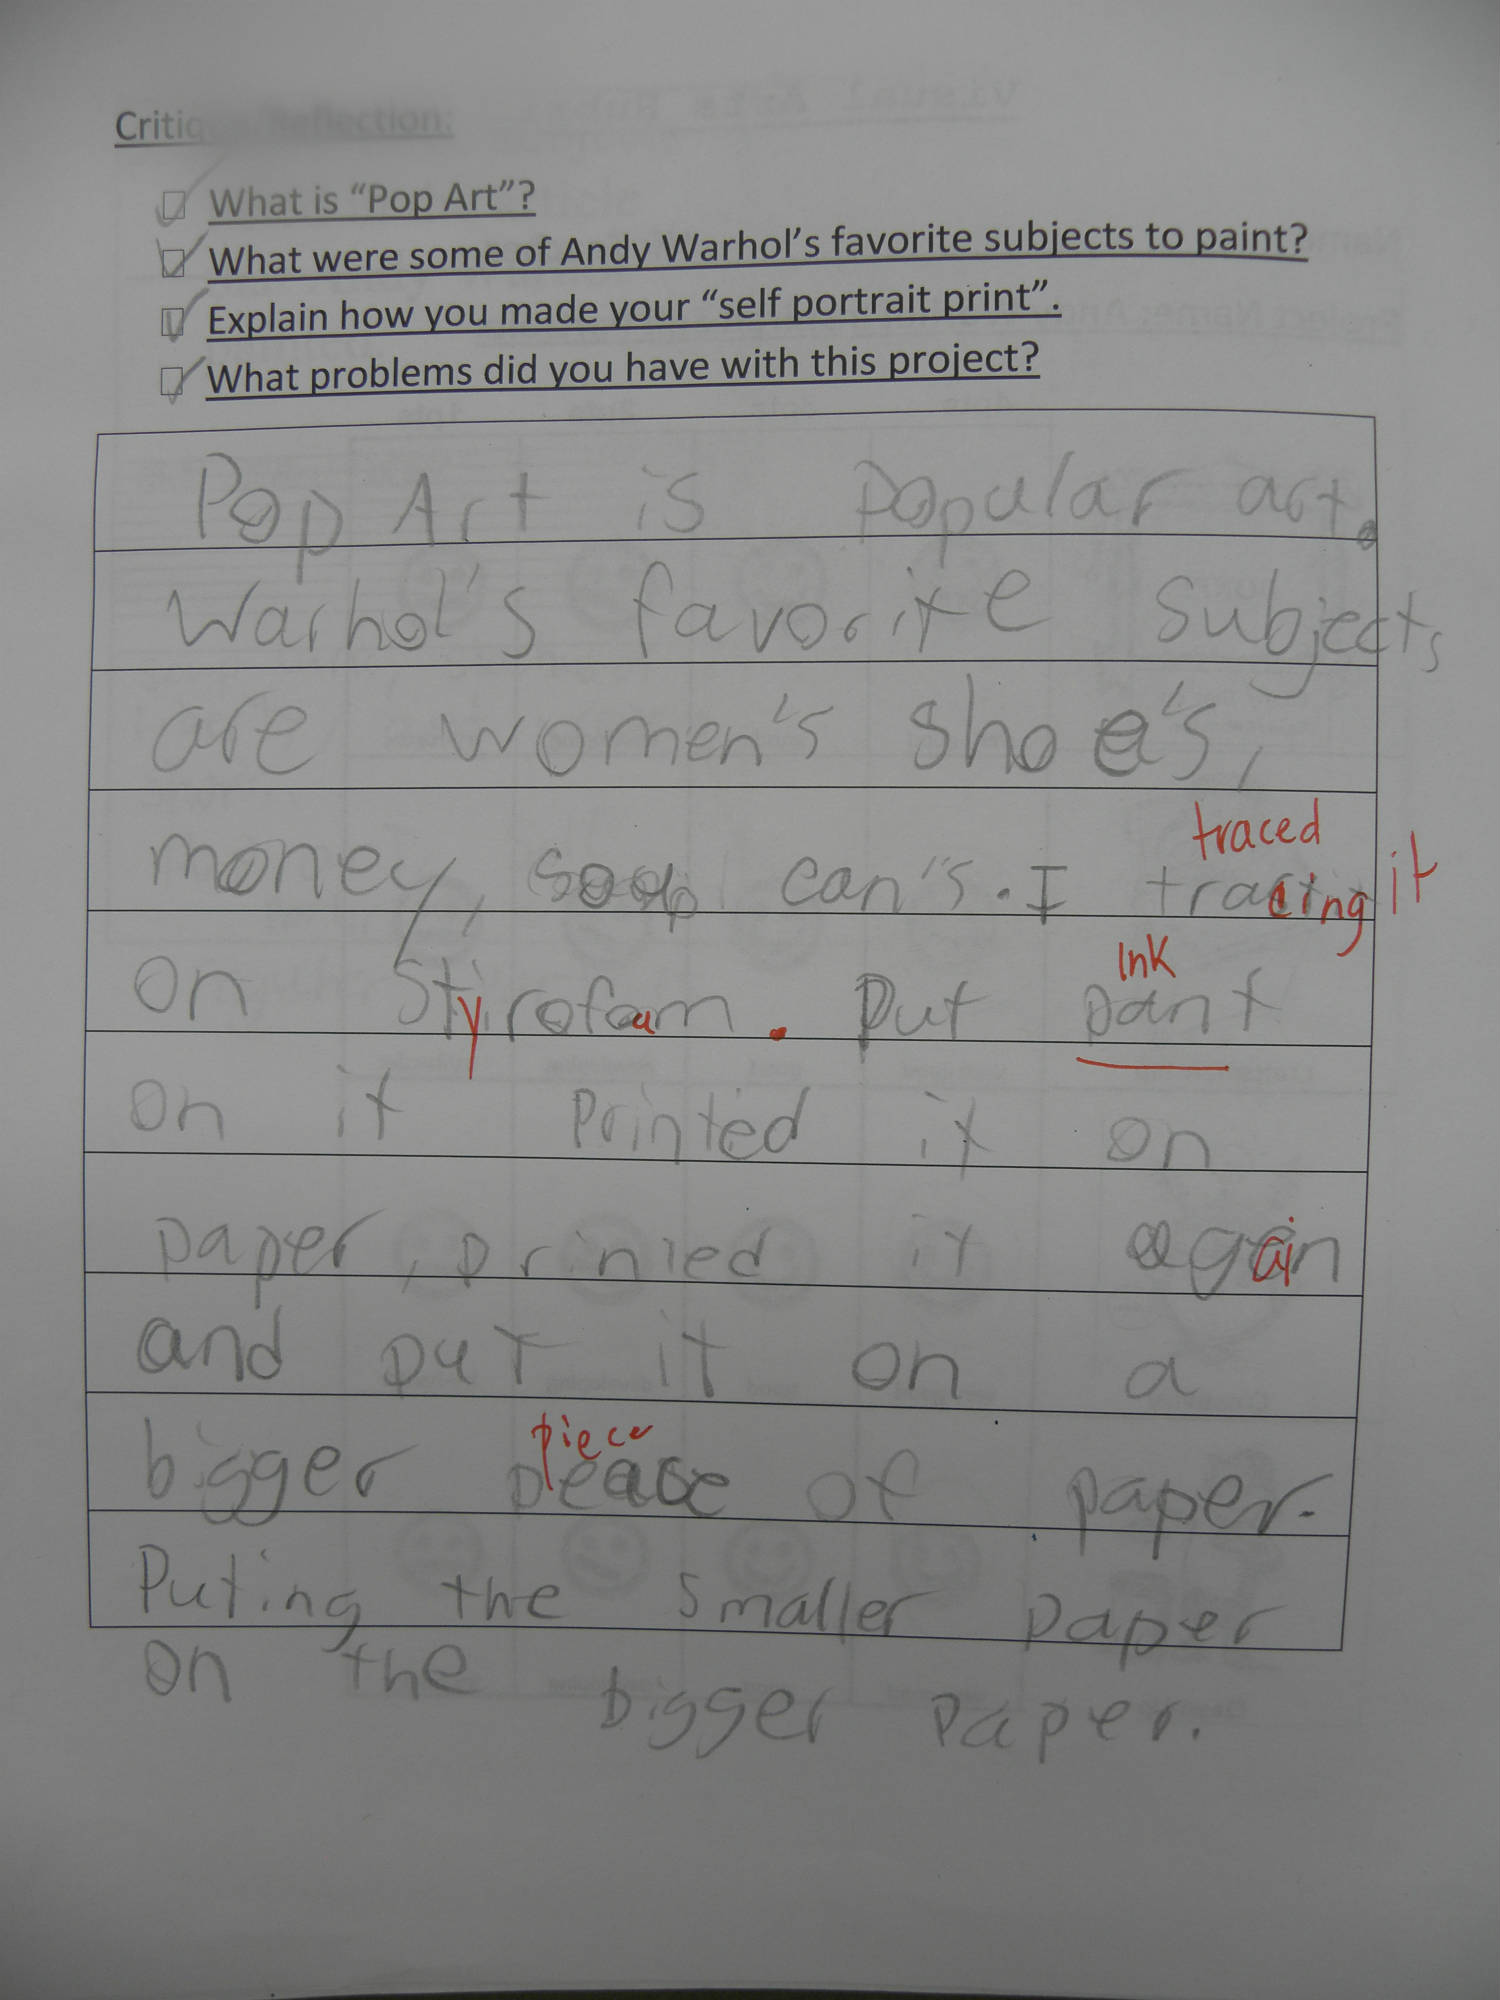 Critique/Reflection:
What is “Pop Art”?
What were some of Andy Warhol’s favorite subjects to paint?
Explain how you made your “self portrait print”.
What problems did you have with this project?
Pop Art is popular art.
Warhol's favorite subjects
are women's shoe's,
traced
money, soop can's. I tracing it
Ink
on Styrofoam. Put pant
on it printed it on
paper, prinied it again
and put it on a
piece
bigger pease of paper.
Puting the smaller paper
on the bigger paper.